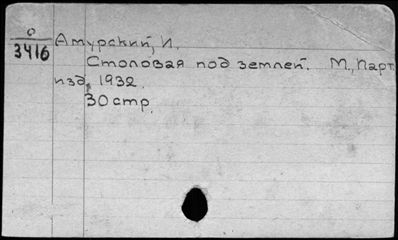 0
3416
Амурский, И.
Столовая под землей. М., Парт
изд, 1932.
30 стр.